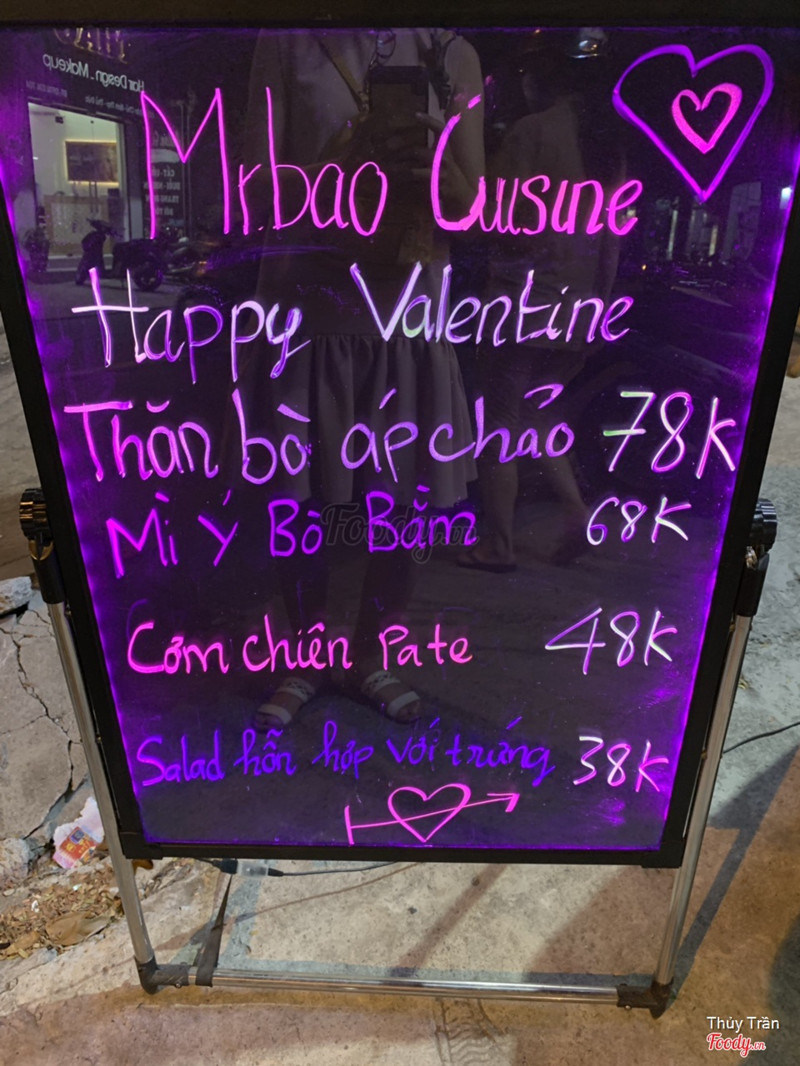 Hair Design . Makeup
Mr.bao Cuisine
Happy Valentine
Thăn bò áp chảo 78K
Mì Ý Bò Bằm 68K
Foody.vn
Cơm chiên Pate 48K
Salad hỗn hợp với trứng 38K
Thủy Trần
Foody.vn